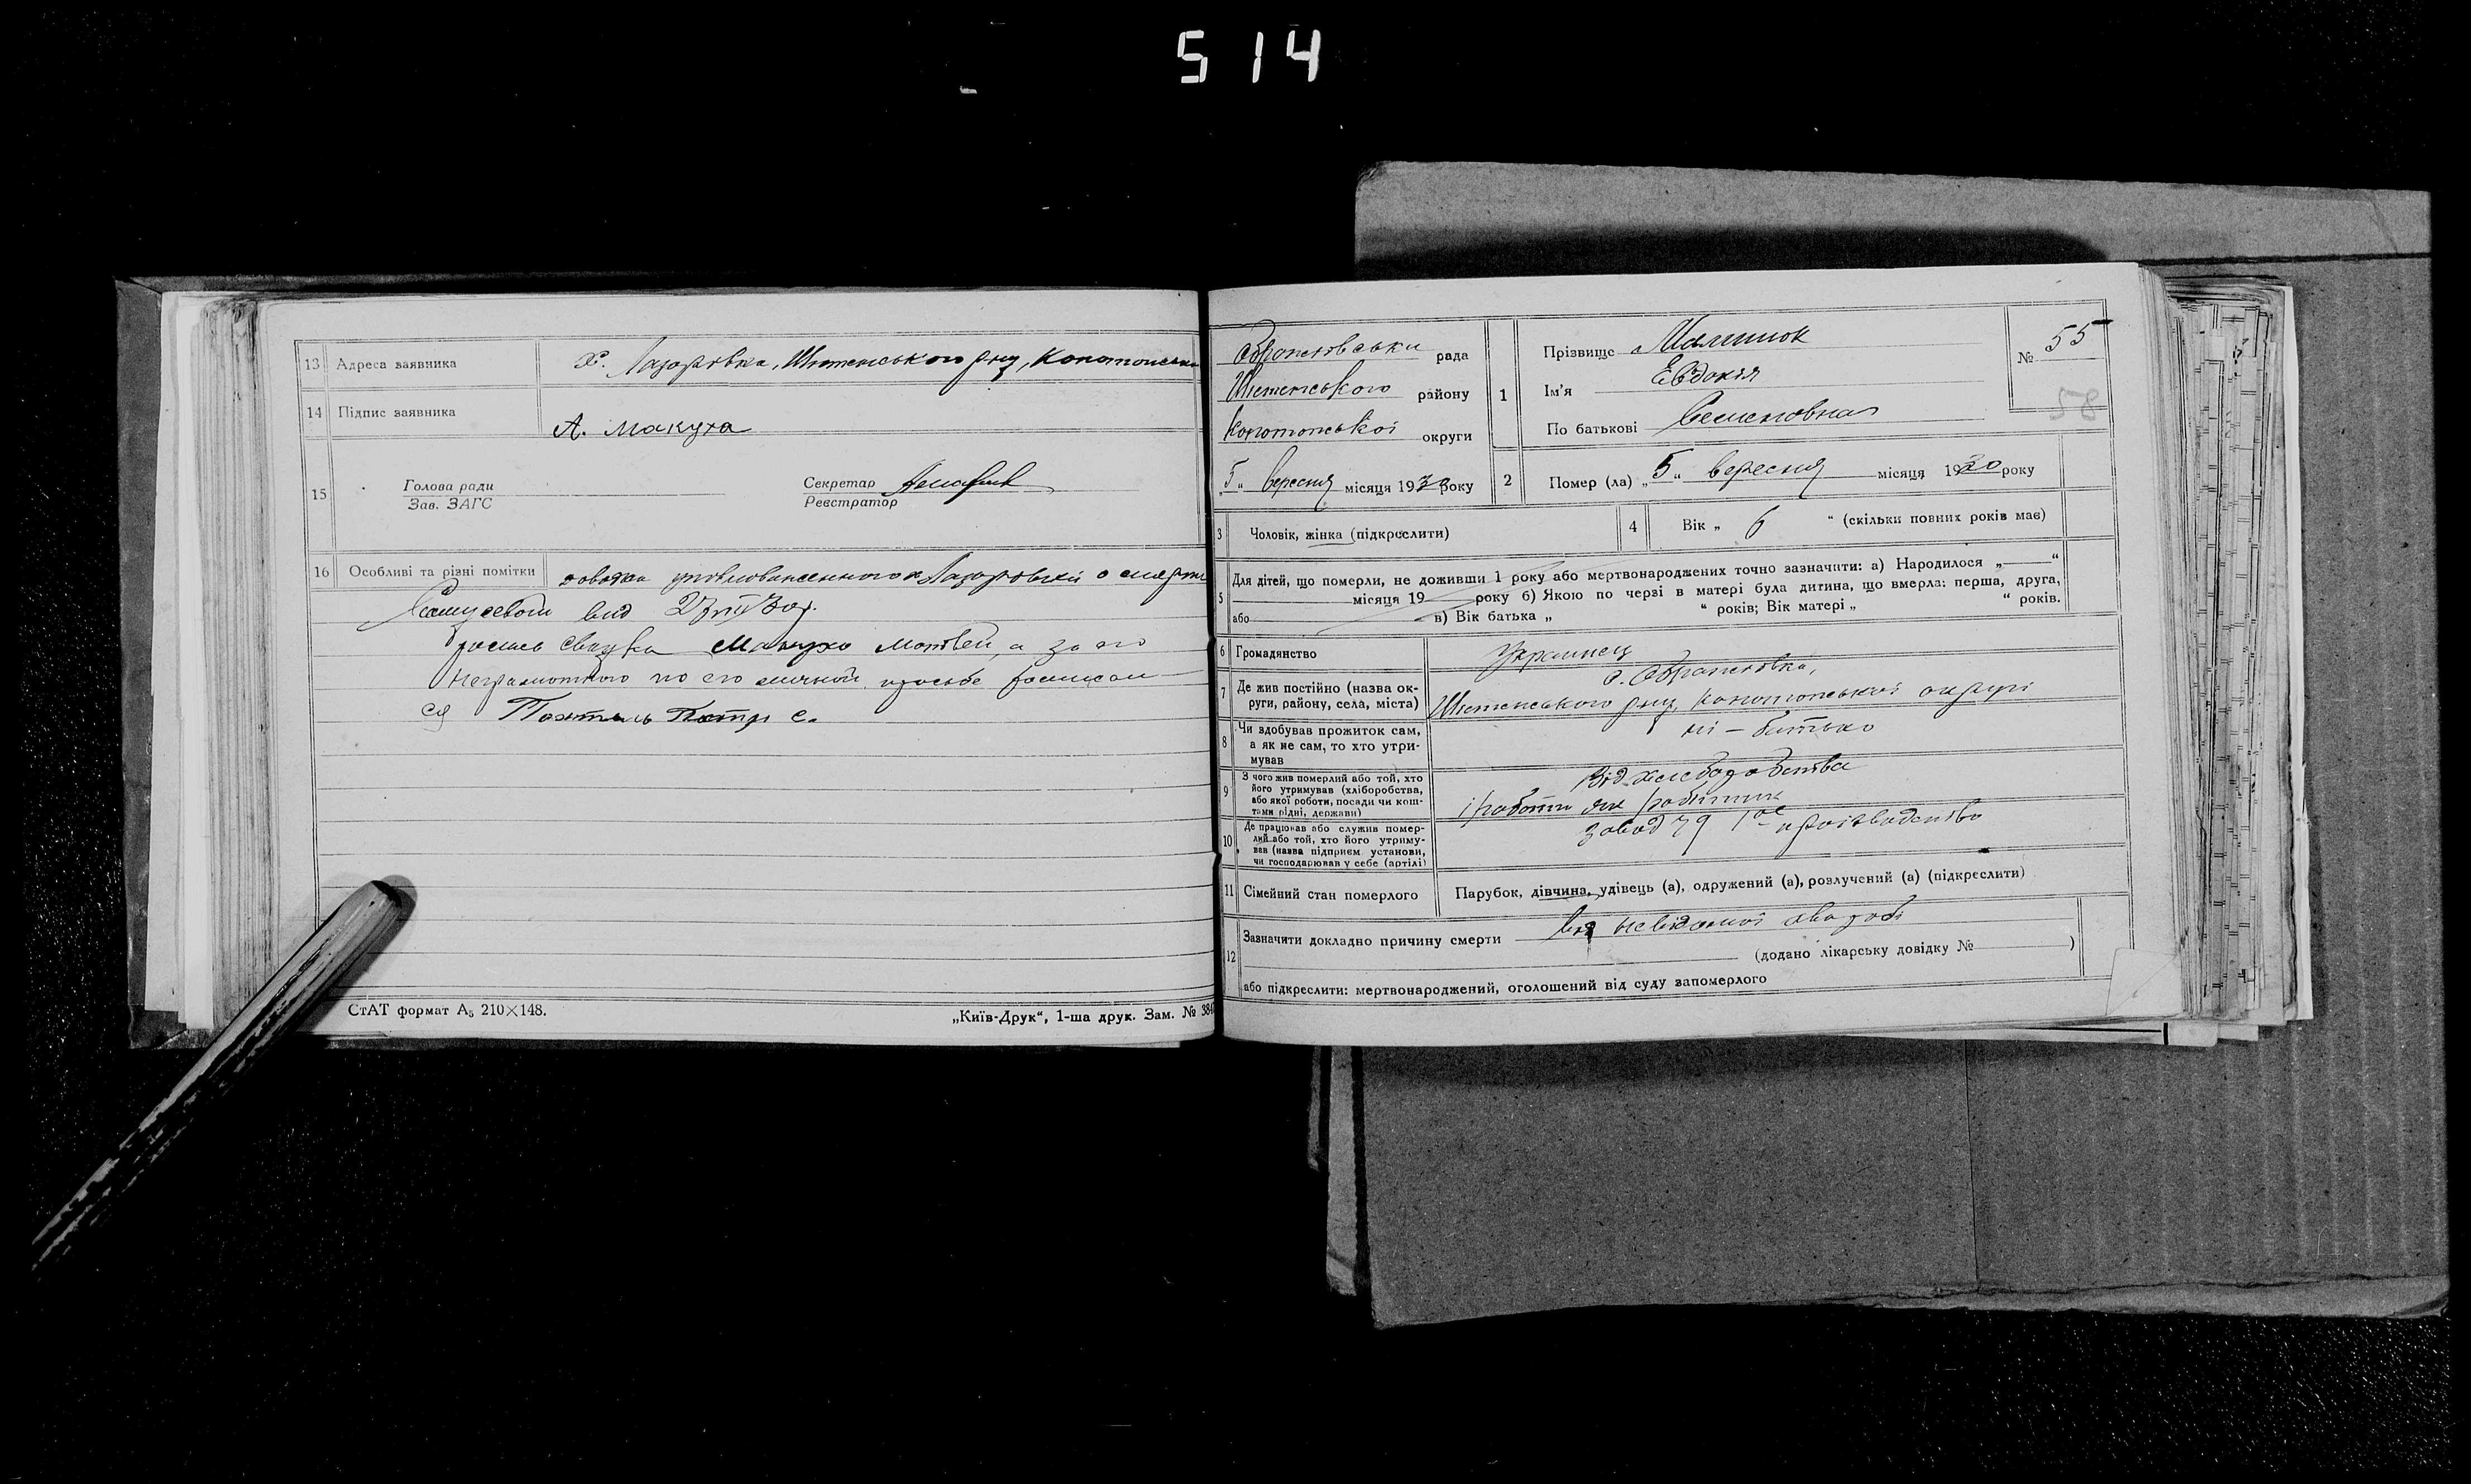 514
13 Адреса заявника Х. Лазоровка, Шостенського р-ну, Конотопсько
14 Підпис заявника А. Макуха
15 Голова ради
Зав. ЗАГС
Секретар
Реєстратор
16 Особливі та різні помітки довідка о смерти
вид
Макухо Матвей, а за его
неграмотного по его личной просьбе росписал
ся Петр С.
СтАТ формат А₅ 210×148.
„Київ-Друк“, 1-ша друк. Зам. № 384
рада
Шостенського району
Конотопської округи
„5„ вересня місяця 1930 року
1 Прізвище Малишок
Ім'я Евдокія
По батькові Семеновна
№ 55
58
2 Помер (ла) „5“ вересня місяця 1930 року
3 Чоловік, жінка (підкреслити)
4 Вік „ 6 “ (скільки повних років має)
5 Для дітей, що померли, не доживши 1 року або мертвонароджених точно зазначити: а) Народилося „ “
місяця 19 року б) Якою по черзі в матері була дитина, що вмерла: перша, друга,
або в) Вік батька „ “ років; Вік матері „ “ років.
6 Громадянство Украинец
7 Де жив постійно (назва ок-
руги, району, села, міста)
Шостенського р-ну, Конотопської округі
8 Чи здобував прожиток сам,
а як не сам, то хто утри-
мував
ні – батько
9 З чого жив померлий або той, хто
його утримував (хліборобства,
або якої роботи, посади чи кош-
тами рідні, держави)
Від хлеборобства
і работи як робітник
10 Де працював або служив помер-
лий або той, хто його утриму-
вав (назва підприєм. установи,
чи господарював у себе (артілі)
завод 79 1ое
11 Сімейний стан померлого Парубок, дівчина, удівець (а), одружений (а), розлучений (а) (підкреслити)
12 Зазначити докладно причину смерти від невідомої хвороби
(додано лікарську довідку № )
або підкреслити: мертвонароджений, оголошений від суду запомерлого